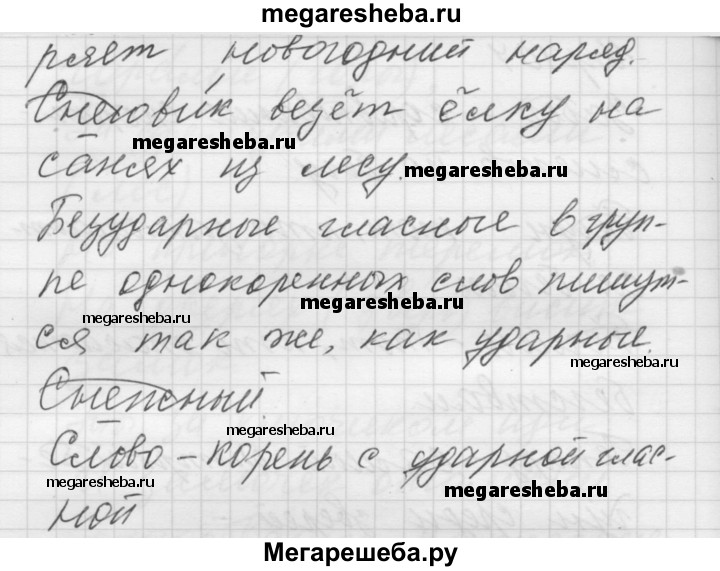 megaresheba.ru
ряет новогодний наряд.
Снеговик везёт ёлку на
megaresheba.ru
megaresheba.ru
санях из лесу.
Безударные гласные в груп-
пе однокоренных слов пишут-
megaresheba.ru
megaresheba.ru
ся так же, как ударные.
megaresheba.ru
Снежный.
megaresheba.ru
Слово – корень с ударной глас-
megaresheba.ru
megaresheba.ru
ной
Мегарешеба.ру